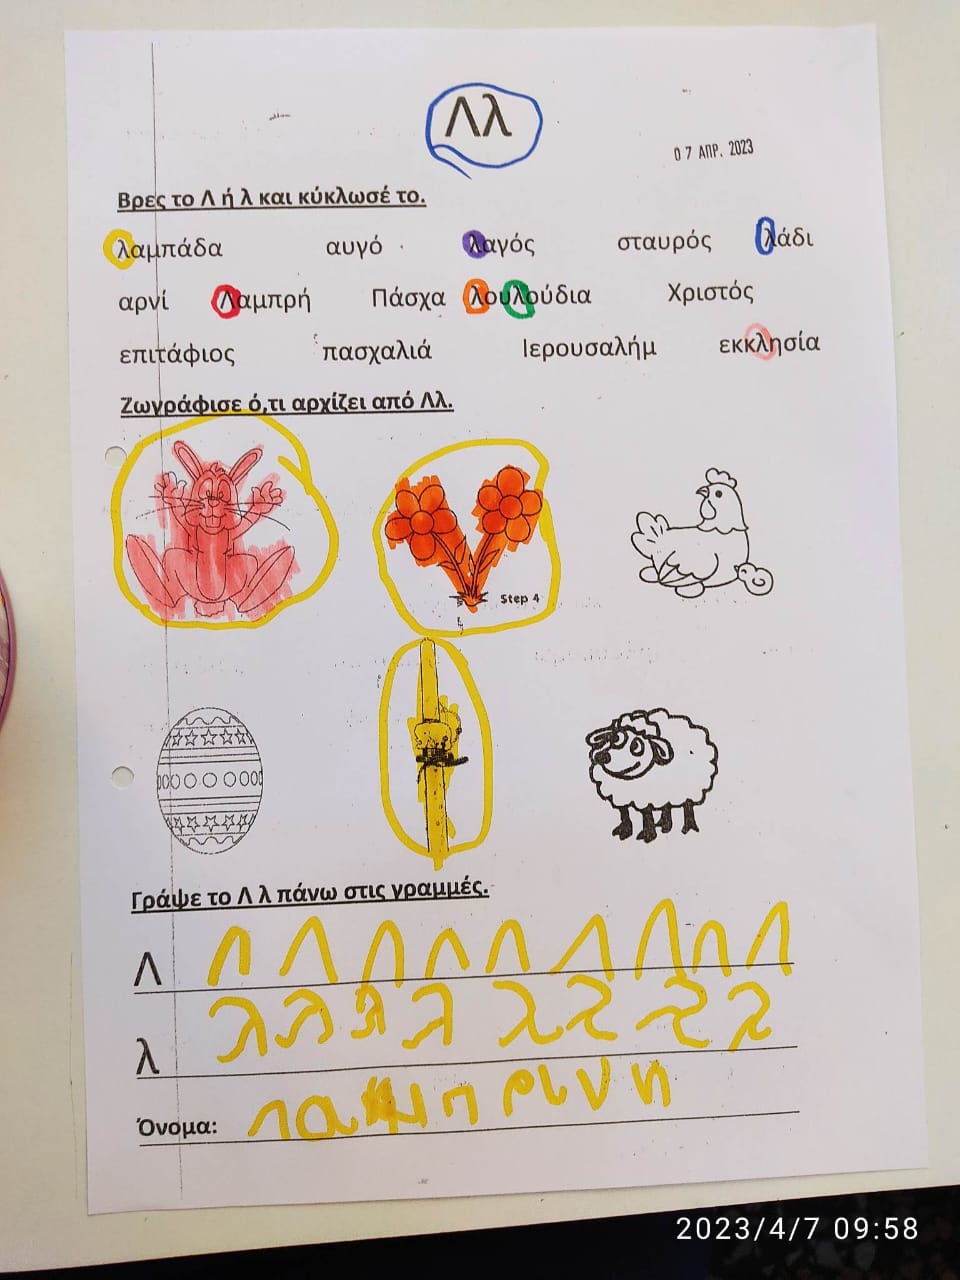 Λλ
0 7 ΑΠΡ. 2023
Βρες το Λ ή λ και κύκλωσέ το.
λαμπάδα αυγό λαγός σταυρός λάδι
αρνί Λαμπρή Πάσχα λουλούδια Χριστός
επιτάφιος πασχαλιά Ιερουσαλήμ εκκλησία
Ζωγράφισε ό,τι αρχίζει από Λλ.
Step 4
Γράψε το Λ λ πάνω στις γραμμές.
Λ Λ Λ Λ Λ Λ Λ Λ Λ Λ
λ λ λ λ λ λ λ λ λ
Όνομα:
2023/4/7 09:58